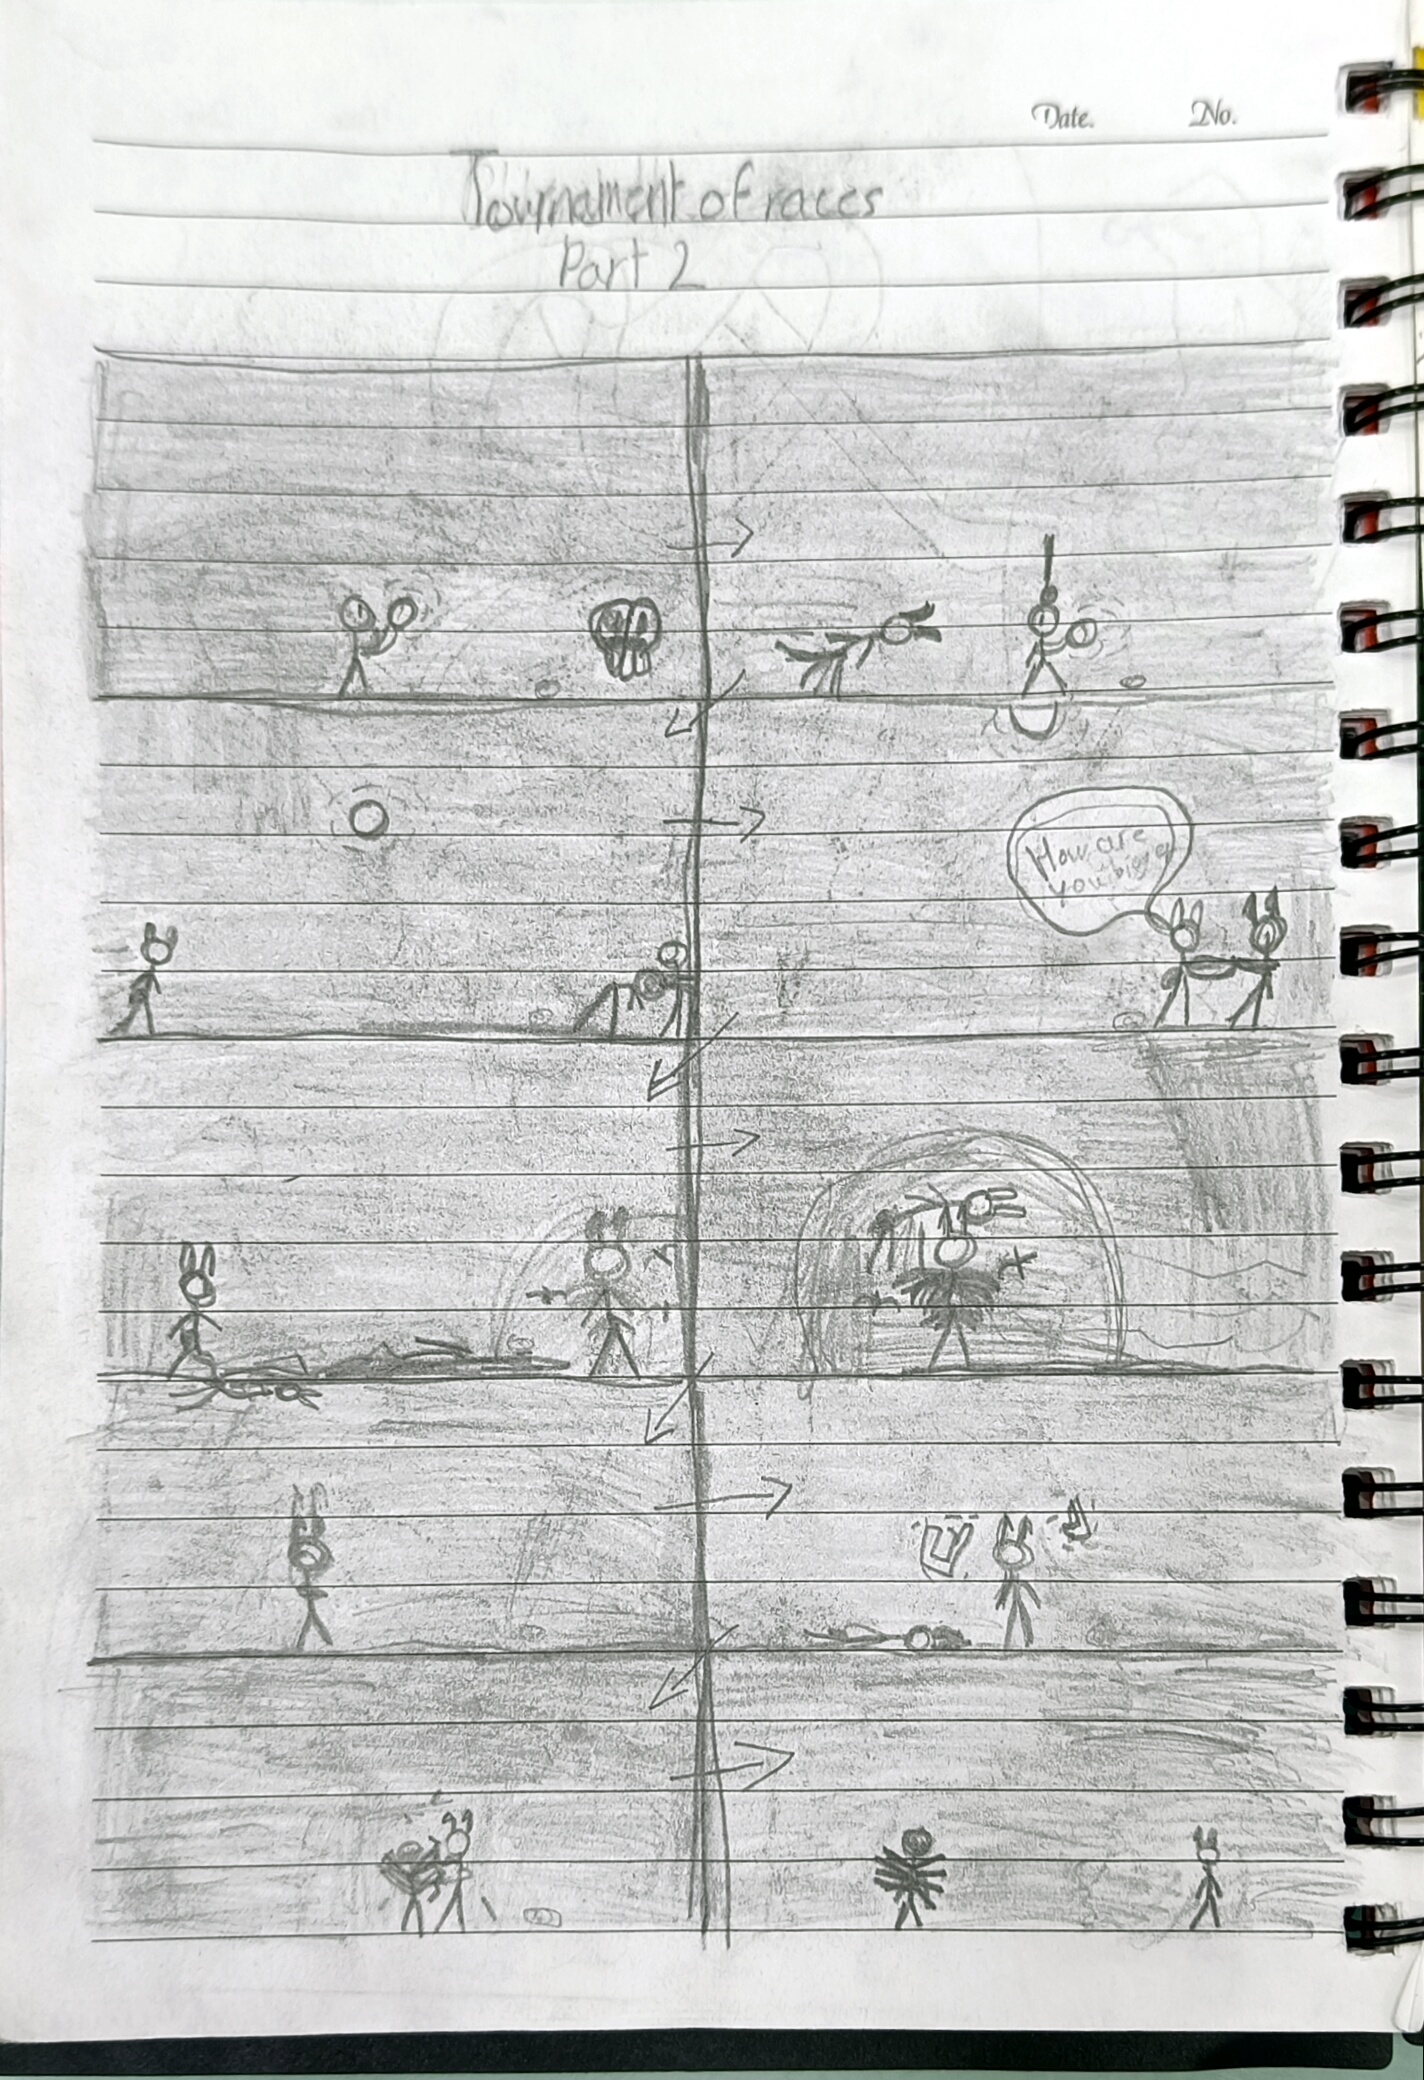 Date. No.
Tournament of races
Part 2
How are
you